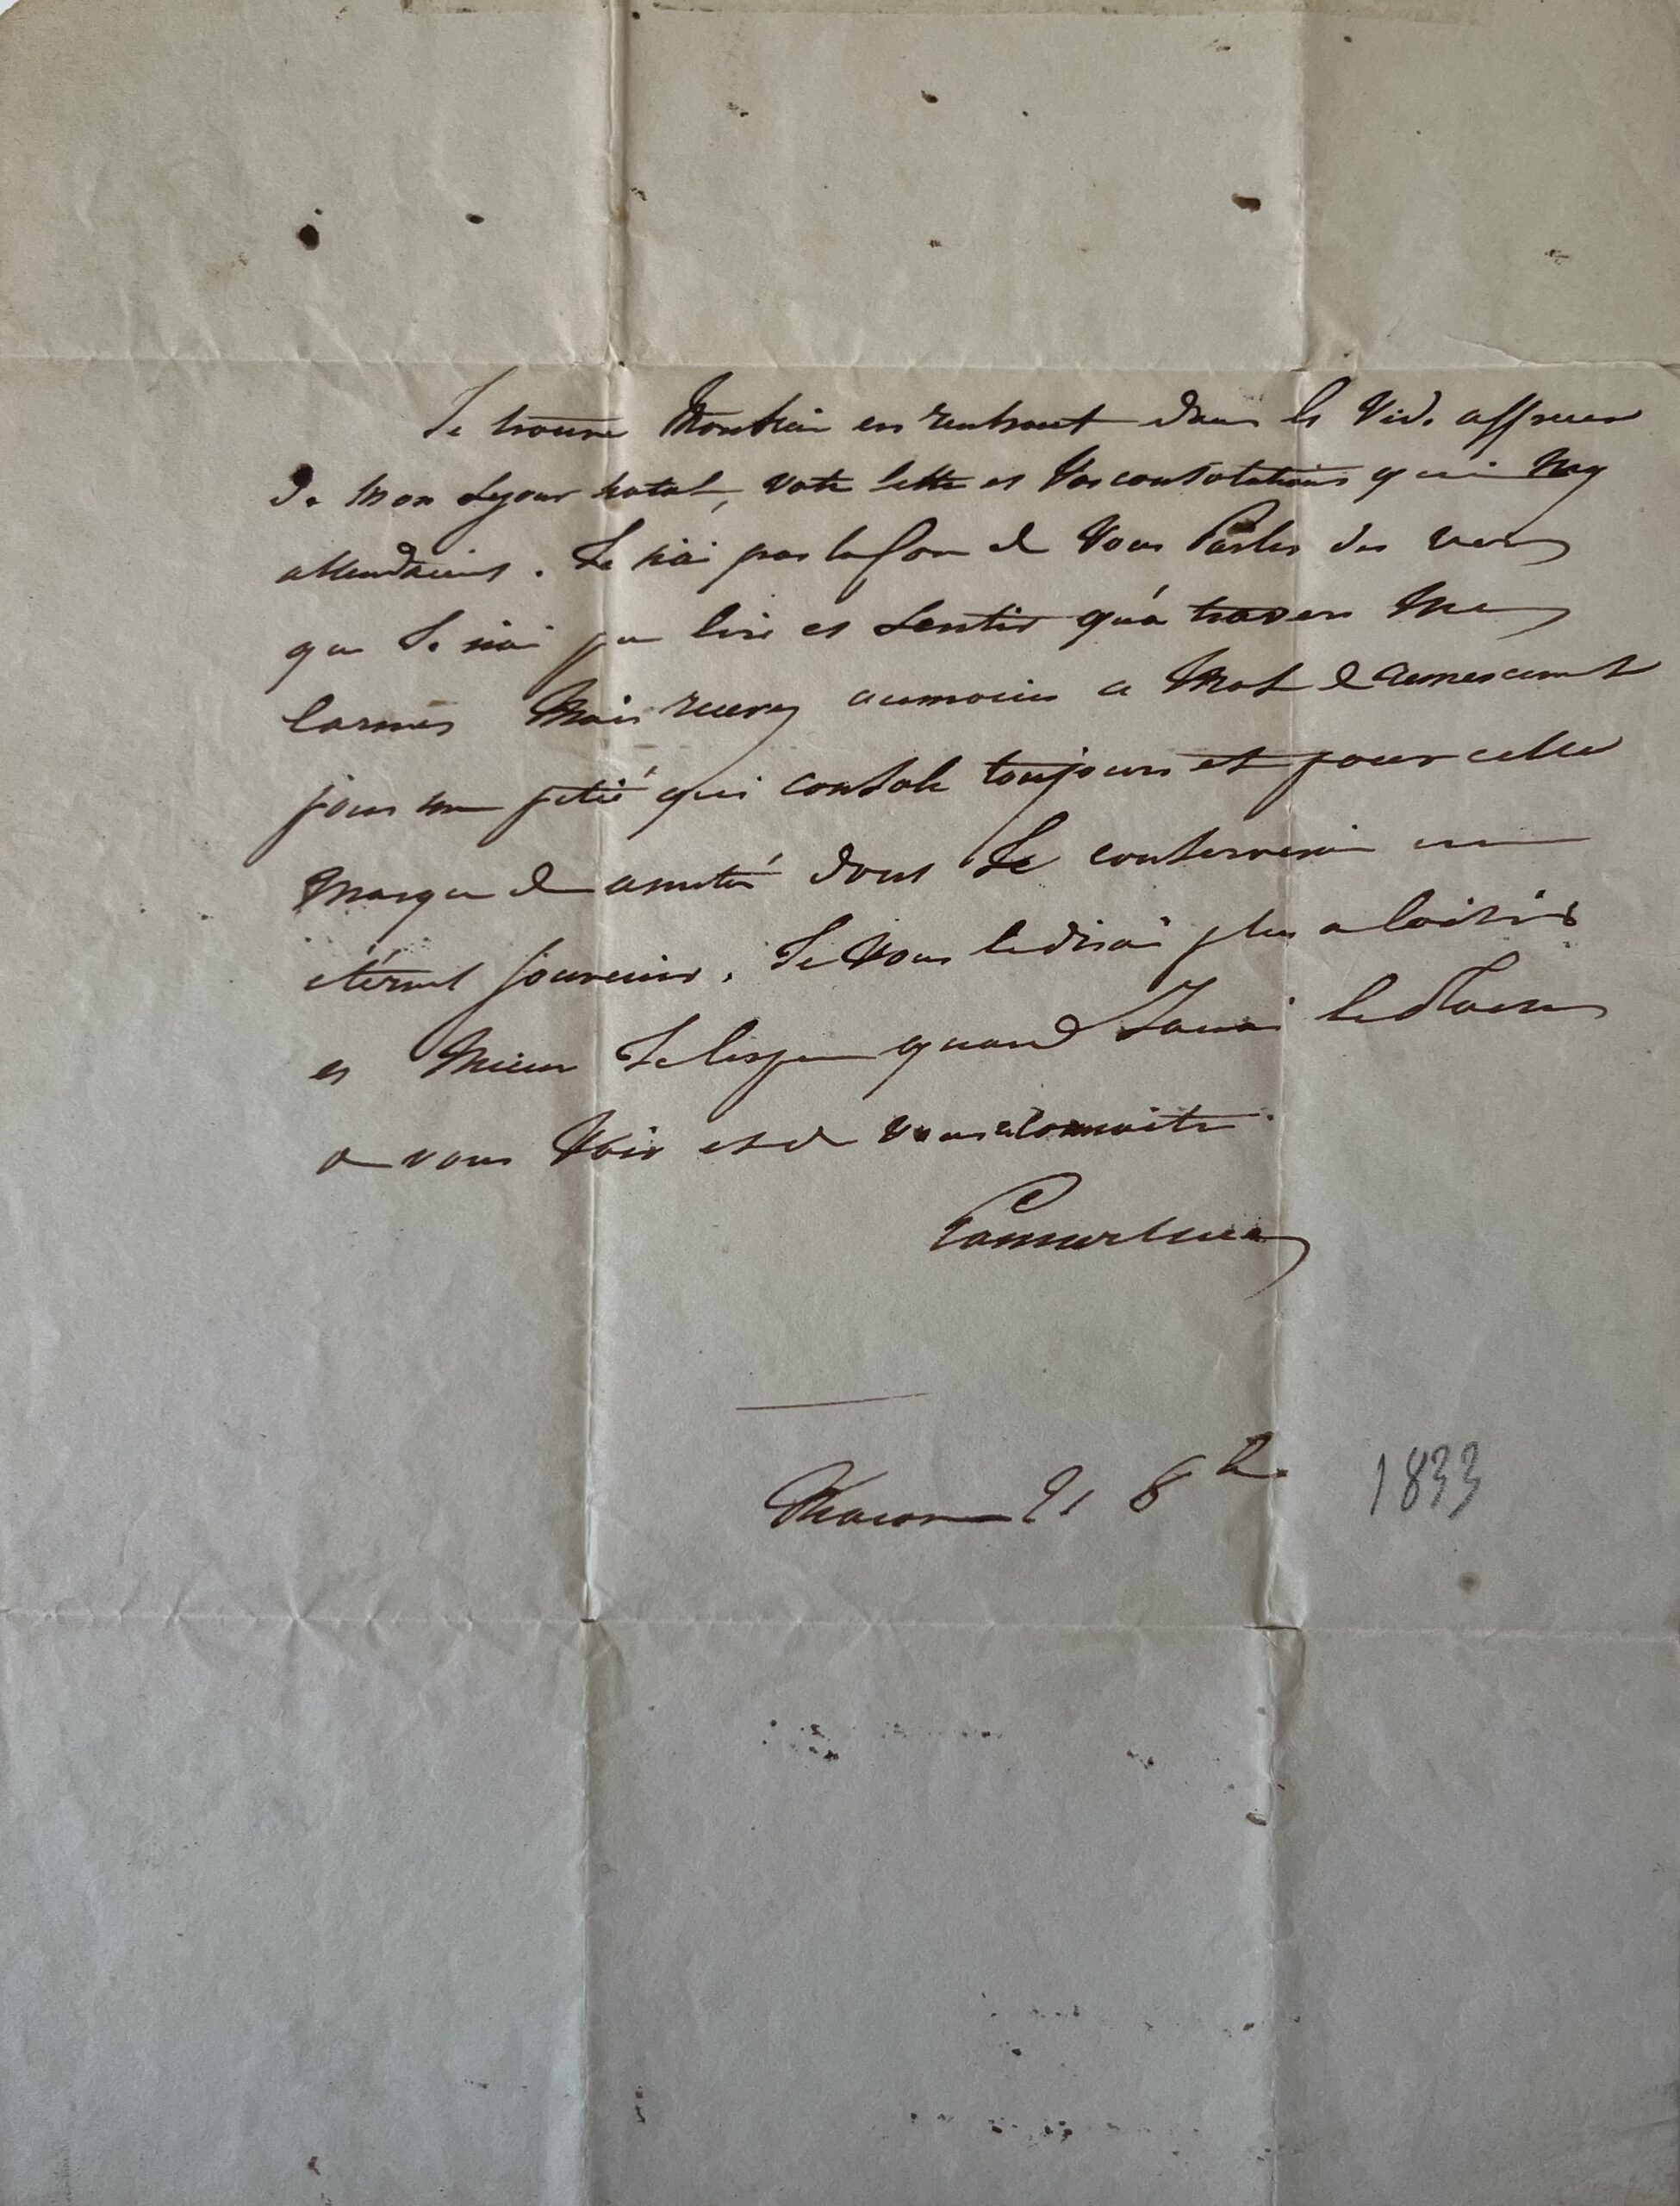 Je trouve Monsieur en rentrant dans le vide affreux
de mon séjour natal, votre lettre et vos consolations qui m'y
attendaient. Je n'ai pas la force de vous parler des vers
que je n'ai pu lire et sentir qu'à travers mes
larmes mais recevez au moins ce mot de remerciement
pour une pitié qui console toujours et pour cette
marque de amitié dont je conserverai un
éternel souvenir. Je vous le dirai plus a loisir
et mieux je l'espère quand j'aurai le
de vous voir et de vous connaitre.
Lamartine
Macon 21 8bre 1833